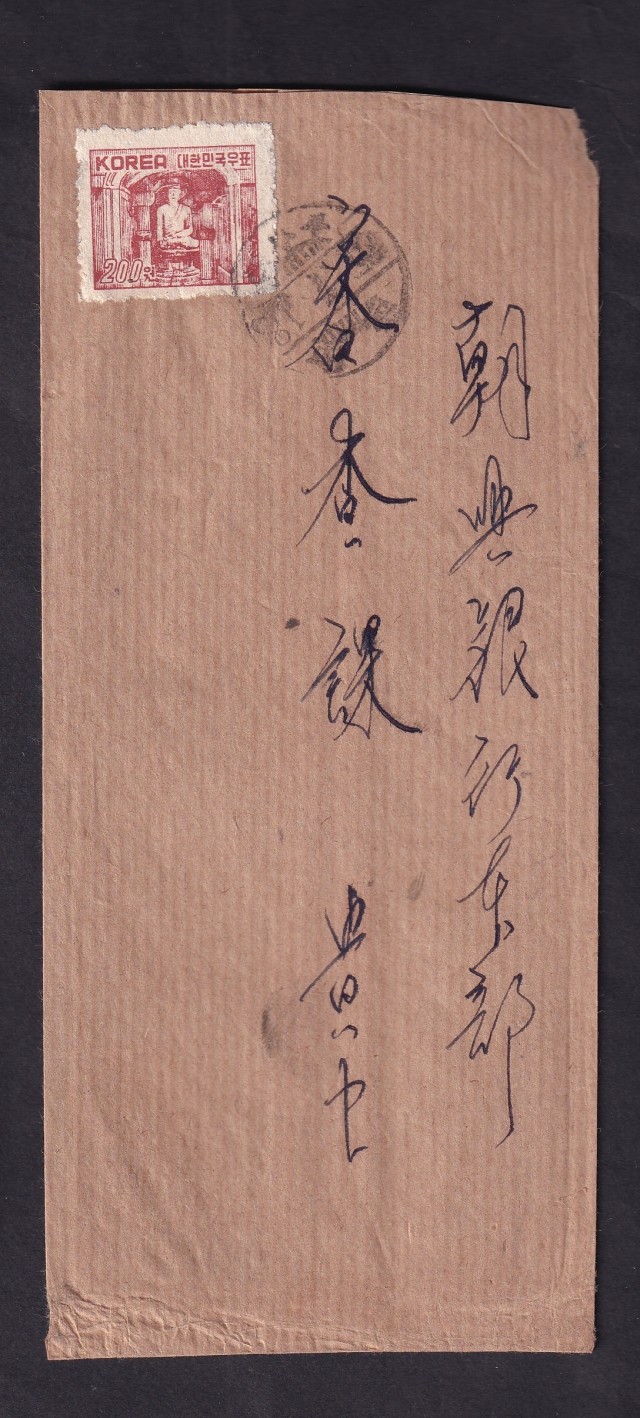 KOREA 대한민국우표
200원
朝興銀行本部
審査課 貴中